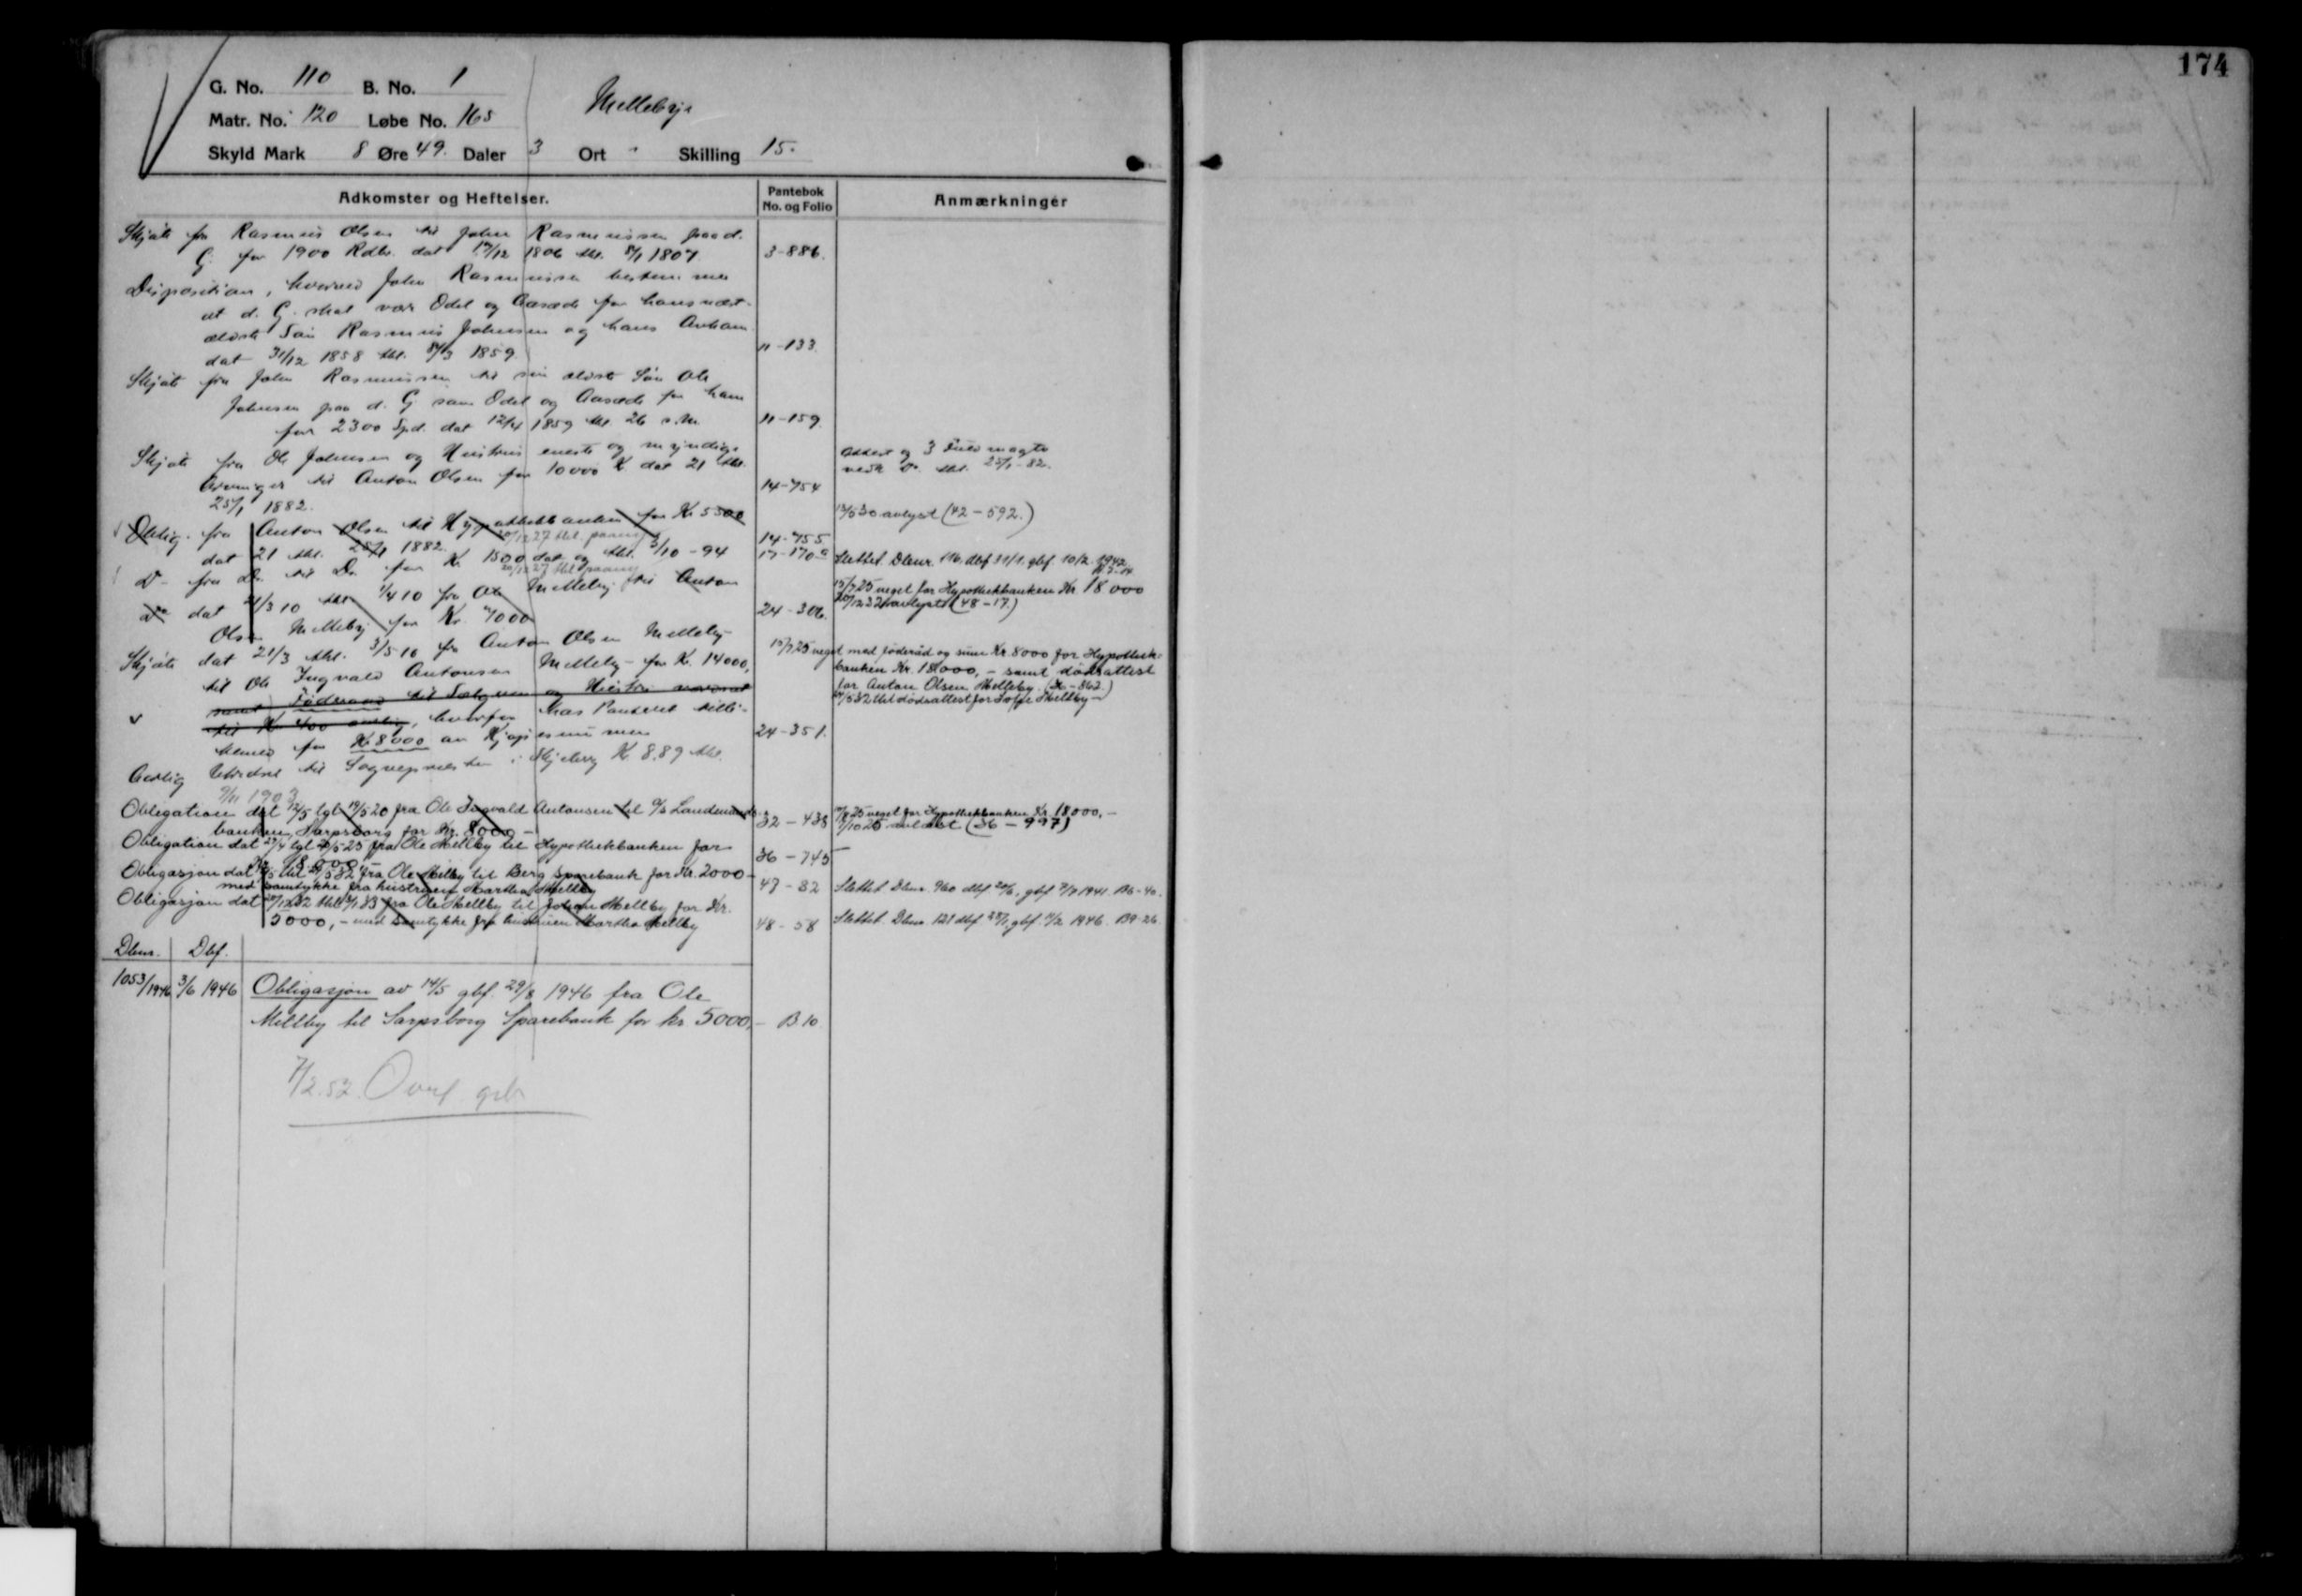 174
G. No. 110 B. No. 1
Matr. No. 120 Løbe No. 165
Melleby
Skyld Mark 8 Øre 49. Daler 3 Ort " Skilling 15.
Adkomster og Heftelser.
Pantebok No. og Folio
Anmærkninger
Skjøte fra Rasmus Olsen til John Rasmussen paa d.
G. for 1900 Rdlr. dat 17/12 1806 thl. 8/1 1807. 3-886.
Disposition, hvorved John Rasmussen bestemmer
at d. G. skal være Odel og Aasæde for hans næst-
ældste Søn Rasmus Johnsen og hans Avkom
dat 31/12 1858 thl. 3 1859. 11-133.
Skjøte fra John Rasmussen til sin ældste Søn Ole
Johnsen paa d. G. som Odel og Aasæde for ham
for 2300 Spd. dat 12/4 1859 thl. 26 s.M. 11-159.
Skjøte fra Ole Johnsen og Hustrus eneste og myndige
Arvinger til Anton Olsen for 10000 K dat 21 thl.
25/1 1882. 14-754
Attest og 3 Fuldmagte
vedk. Do. thl. 25/1-82.
Oblig. fra Anton Olsen til Hypothekbanken for Kr 5500
dat 21 thl. 25/1 1882. 20/12 27 thl. paany 14-755
13/5 30 avlyst (42-592.)
Do fra Do til Do for K. 1500 dat og thl. 3/10-94 17-170
20/12 27 thl. paany
Slettet. Dbnr. 116, dbf 31/1, gbf. 10/2. 1942
Do dat 21/3 10 thl. 1/4 10 fra Ole Melleby til Anton
Olsen Melleby for Kr. 7000 24-306.
15/7 25 veget for Hypothekbanken Kr. 18 000
20/12 32 avlyst (48-17.)
Skjøte dat 21/3 thl. 3/5 10 fra Anton Olsen Melleby
til Ole Ingvald Antonsen Melleby for K. 14000,
samt Føderaad til Sælgeren og Hustru
til Kr 400 aarlig, hvorfor
for Kr 8000 av Kjøpesummen 24-351.
15/7 25 veget med føderåd og sum Kr. 8000 for Hypothek-
banken Kr. 18.000,- samt dødsattest
for Anton Olsen Melleby. (36-862.)
5 32 thl dødsattest for Sofie Mellby
Aarlig til Sognepresten i Skjeberg K 8,89 thl.
9/11 1903
Obligation dat 12/5 lgl 19/5 20 fra Ole Ingvald Antonsen til A/s Landmands-
banken, Sarpsborg for Kr. 8000,- 32-438
7 25 veget for Hypothekbanken Kr. 18000,-
10 25 avlæst (36-997)
Obligation dat 27/4 lgl 5-25 fra Ole Mellby til Hypothekbanken for
Kr. 18.000,- 36-745
Obligasjon dat 5 thl 5 32 fra Ole Melby til Berg Sparebank for Kr. 2000-
med samtykke fra hustruen Martha Mellby 47-82
Slettet. Dbnr. 960 dbf 20/6, gbf 7/7 1941. B6-40.
Obligasjon dat 12 32 thl 1 33 fra Ole Mellby til Johan Mellby for Kr.
5000,- med samtykke fra hustruen Martha Mellby 48-58
Slettet. Dbnr. 121 dbf 28/1, gbf. 11/2 1946. B9-26
Dbnr. Dbf.
1053/1946 3/6 1946 Obligasjon av 14/5 gbf. 29/8 1946 fra Ole
Mellby til Sarpsborg Sparebank for kr 5000,- B 10
7/2.52. Overf grb